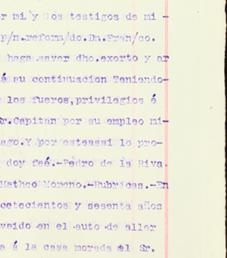 r mi y dos testigos de mi -
p/n.reform/do.Dn.Fran/co.
haga saver dho.exorto y ar
á su continuacion Teniendo-
los fueros,privilegios é
r.Capitan por su empleo mi-
ago.Y por esteassi lo pro-
doy feé.-Pedro de la Riva.
Matheo Moreno.-Rubricas.-En
cetecientos y sesenta años
veido en el auto de aller
a á la casa morada del Sr.